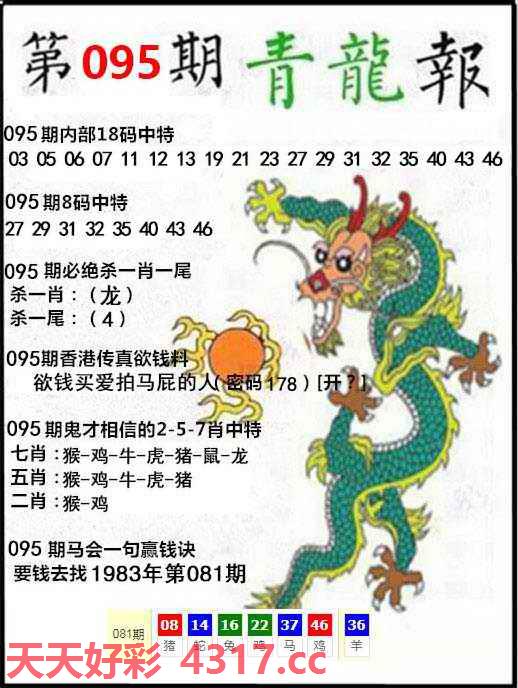 第095期 青龍報
095期内部18码中特
03 05 06 07 11 12 13 19 21 23 27 29 31 32 35 40 43 46
095期8码中特
27 29 31 32 35 40 43 46
095期必绝杀一肖一尾
杀一肖：（龙）
杀一尾：（4）
095期香港传真欲钱料
欲钱买爱拍马屁的人(密码178)[开？]
095期鬼才相信的2-5-7肖中特
七肖：猴-鸡-牛-虎-猪-鼠-龙
五肖：猴-鸡-牛-虎-猪
二肖：猴-鸡
095期马会一句赢钱诀
要钱去找1983年第081期
081期 08 14 16 22 37 46 36
猪 蛇 兔 鸡 马 鸡 羊
天天好彩 4317.cc